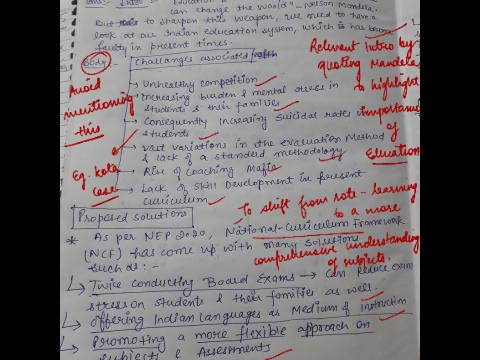 Education is
can change the World" - Nelson Mandela.
But to sharpen this weapon, we need to have a
look at our Indian education system, which has been
faulty in present times.
Relevant intro by
quoting Mandela
to highlight
importance
of
Education
Body
Challenges associated
Avoid
mentioning
this
Eg. Kota
case
→ Unhealthy competition
→ Increasing burden & mental stress in
students & their families
→ Consequently Increasing Suicidal rates in
students
→ Vast variations in the evaluation Method
& lack of a standard methodology
→ Rise of Coaching Mafia
→ Lack of Skill Development in present
curriculum
To shift from rote-learning
to a more
comprehensive understanding
of subjects.
Proposed solutions
* As per NEP 2020, National-Curriculum Framework
(NCF) has come up with many solutions
such as:-
Twice conducting Board Exams → Can Reduce exam
stress on students & their families as well.
Offering Indian Languages as Medium of Instruction
Promoting a more flexible approach on
Subjects & Assessments